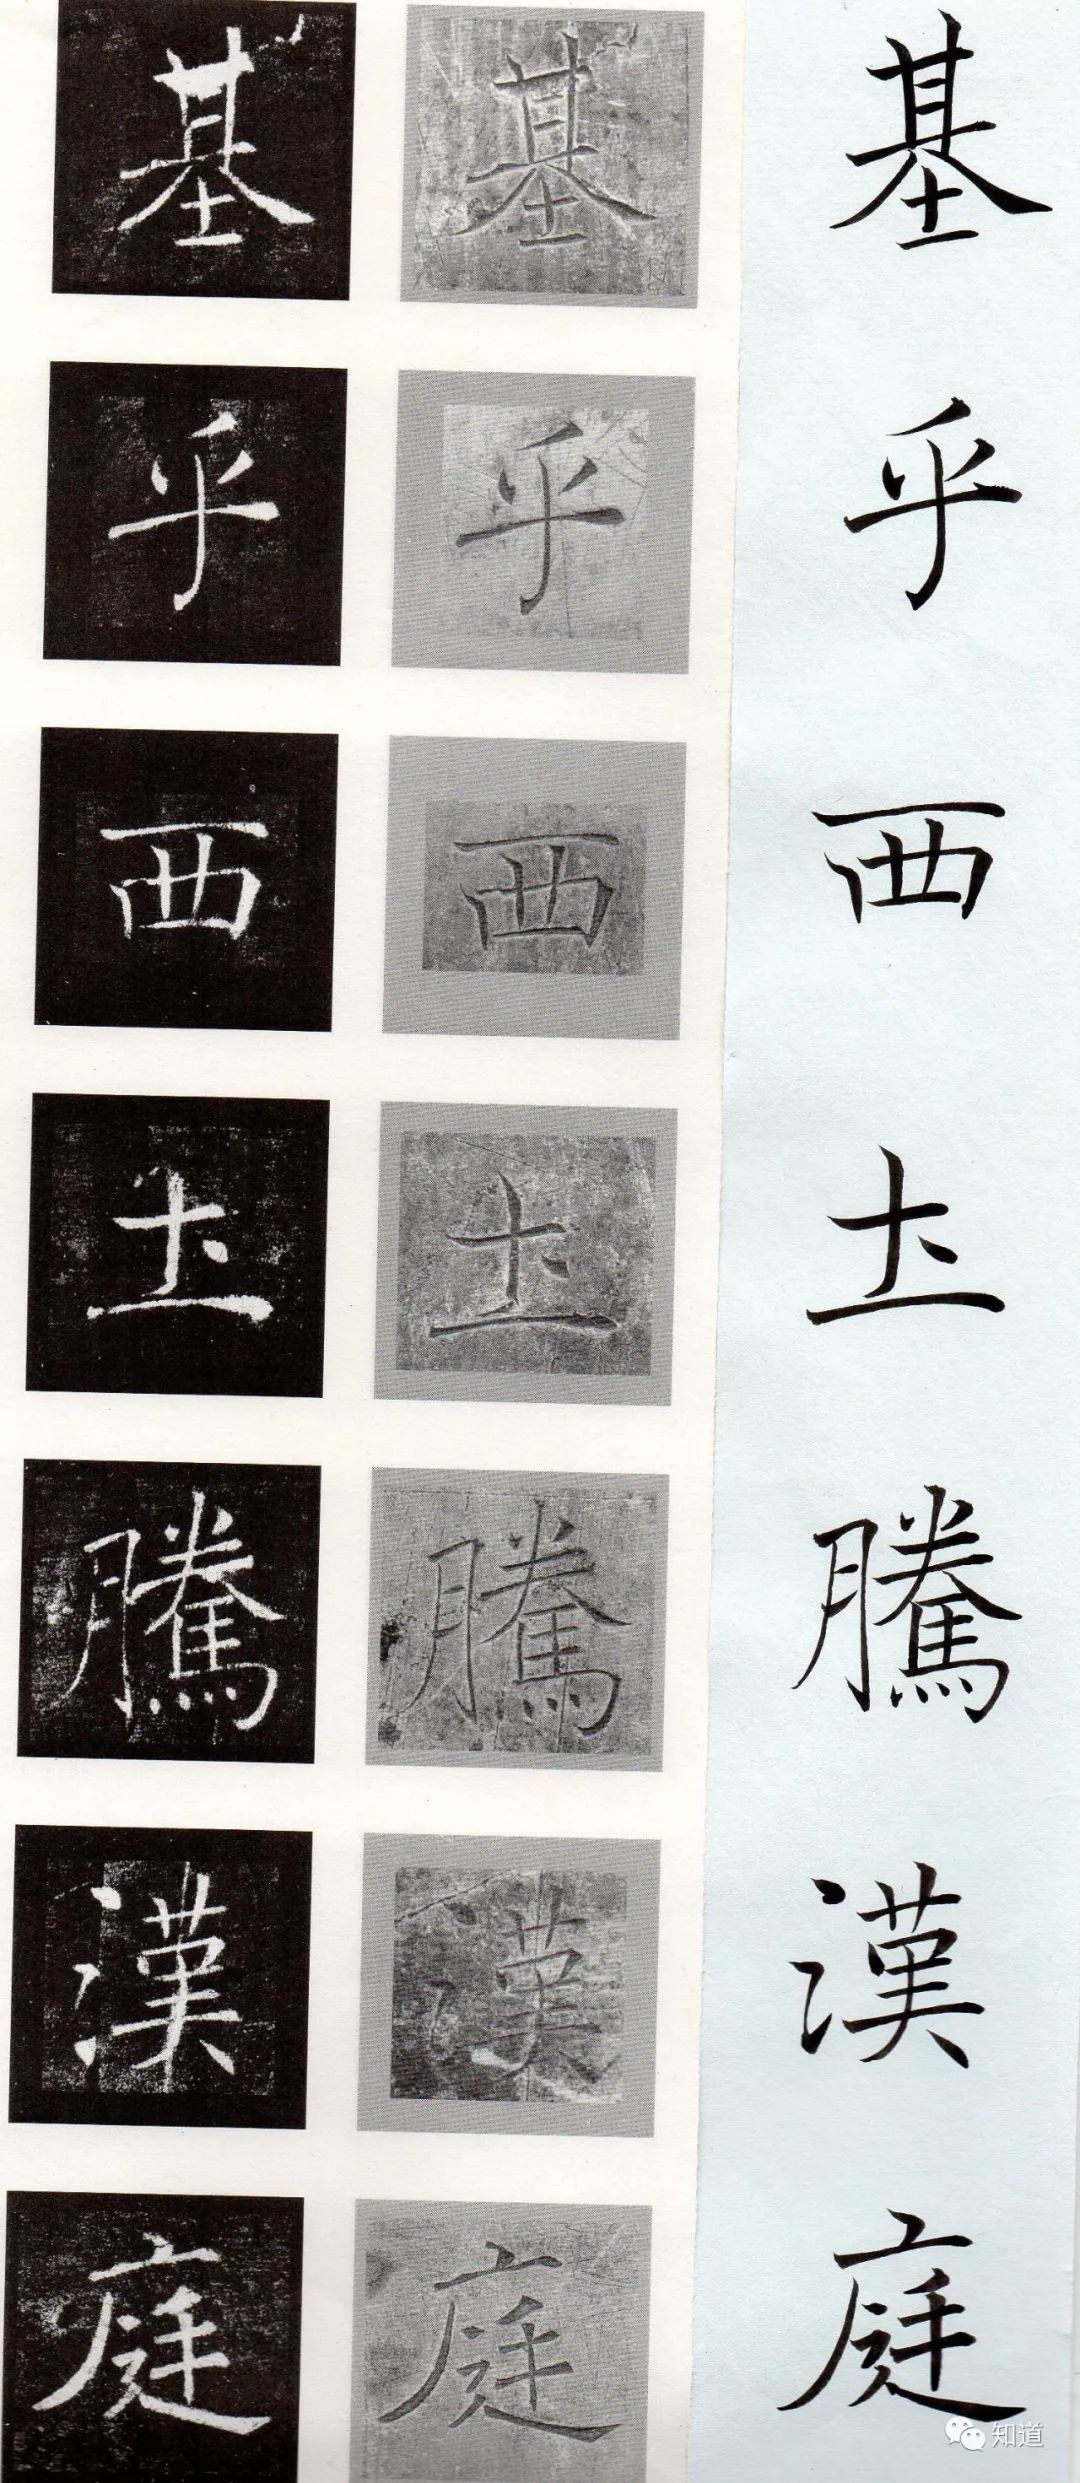 基 基 基
乎 乎 乎
西 西 西
圡 圡 圡
騰 騰 騰
漢 漢 漢
庭 庭 庭
知道